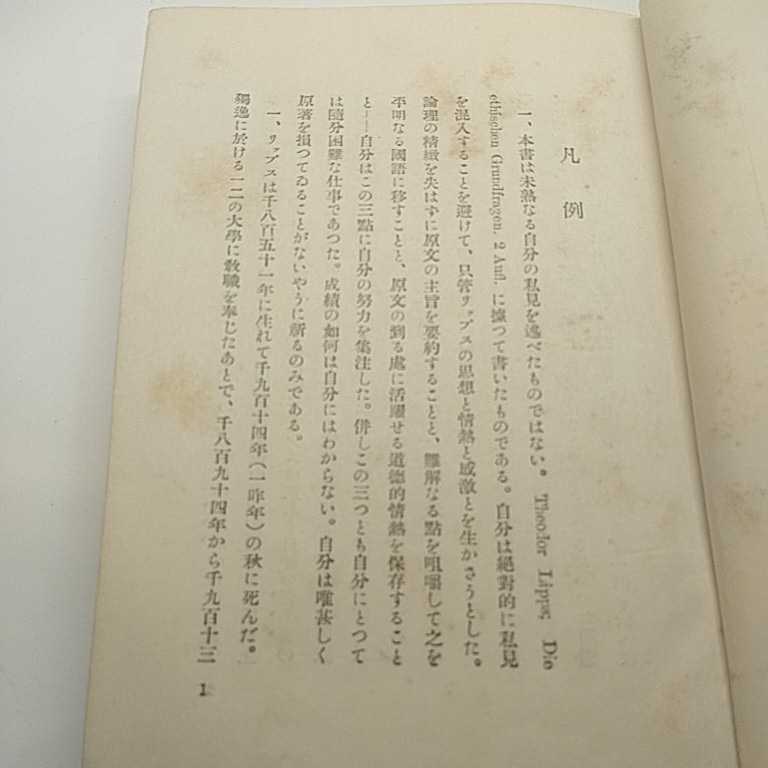 凡例
一、本書は未熟なる自分の私見を述べたものではない。Theodor Lipps, Die
ethischen Grundfragen. 2 Aufl. に據つて書いたものである。自分は絕對的に私見
を混入することを避けて、只管リップスの思想と情熱と感激とを生かさうとした。
論理の精緻を失はずに原文の主旨を要約することと、難解なる點を咀嚼して之を
平明なる國語に移すことと、原文の到る處に活躍せる道德的情熱を保存すること
と——自分はこの三點に自分の努力を集注した。併しこの三つとも自分にとつて
は隨分困難な仕事であつた。成績の如何は自分にはわからない。自分は唯甚しく
原著を損つてゐることがないやうに祈るのみである。
一、リップスは千八百五十一年に生れて千九百十四年（一昨年）の秋に死んだ。
獨逸に於ける一二の大學に敎職を奉じたあとで、千八百九十四年から千九百十三
1